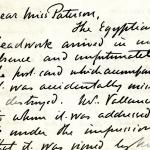 ear Miss Paterson,
The Egyptian
eadwork arrived in m
bsence and unfortunatel
he post card which accompa
was accidentally mis
destroyed. Mr. Vallanc
to whom it was addressed
under the impression
that it was signed by